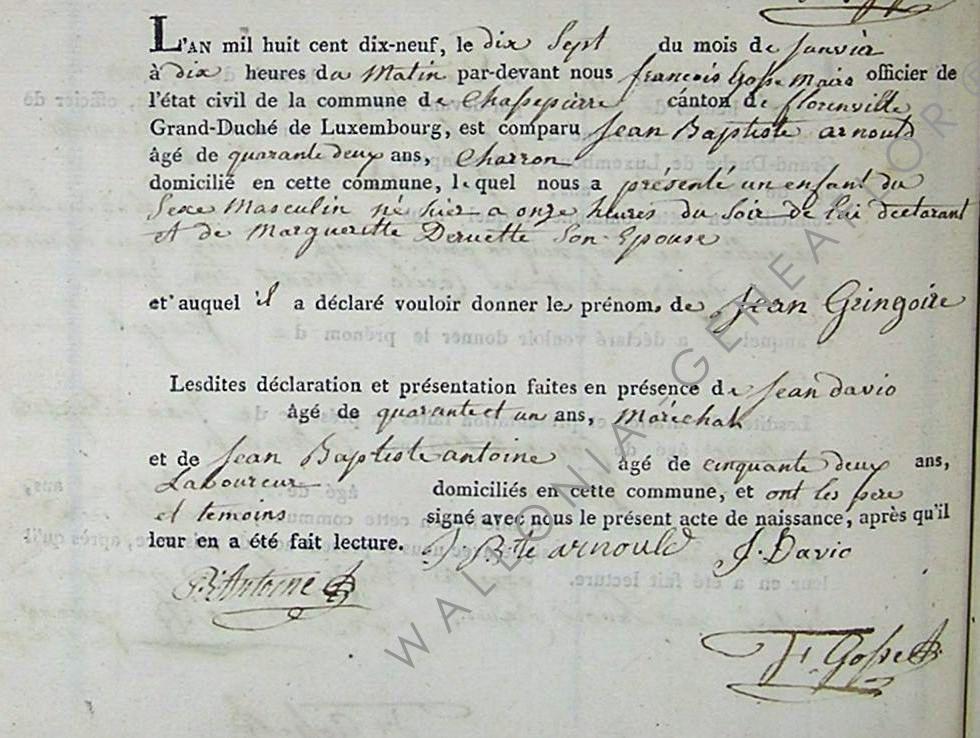 L'AN mil huit cent dix-neuf, le dix Sept du mois de Janvier
à dix heures du Matin par-devant nous françois Gosse Maire officier de
l'état civil de la commune de Chassepierre canton de florenville
Grand-Duché de Luxembourg, est comparu Jean Baptiste arnould
âgé de quarante deux ans, Charron
domicilié en cette commune, lequel nous a présenté un enfant du
Sexe Masculin né hier a onze heures du Soir de lui declarant
et de Margueritte Deruette Son Epouse
et auquel il a déclaré vouloir donner les prénoms de Jean Gringoire
Lesdites déclaration et présentation faites en présence de Jean davio
âgé de quarante et un ans, Maréchal
et de Jean Baptiste antoine âgé de cinquante deux ans,
Laboureur domiciliés en cette commune, et ont les pere
et temoins signé avec nous le présent acte de naissance, après qu'il
leur en a été fait lecture. J. B.te arnould J. Davio
Antoine
F. Gosse
WALLONIA GENEALOR